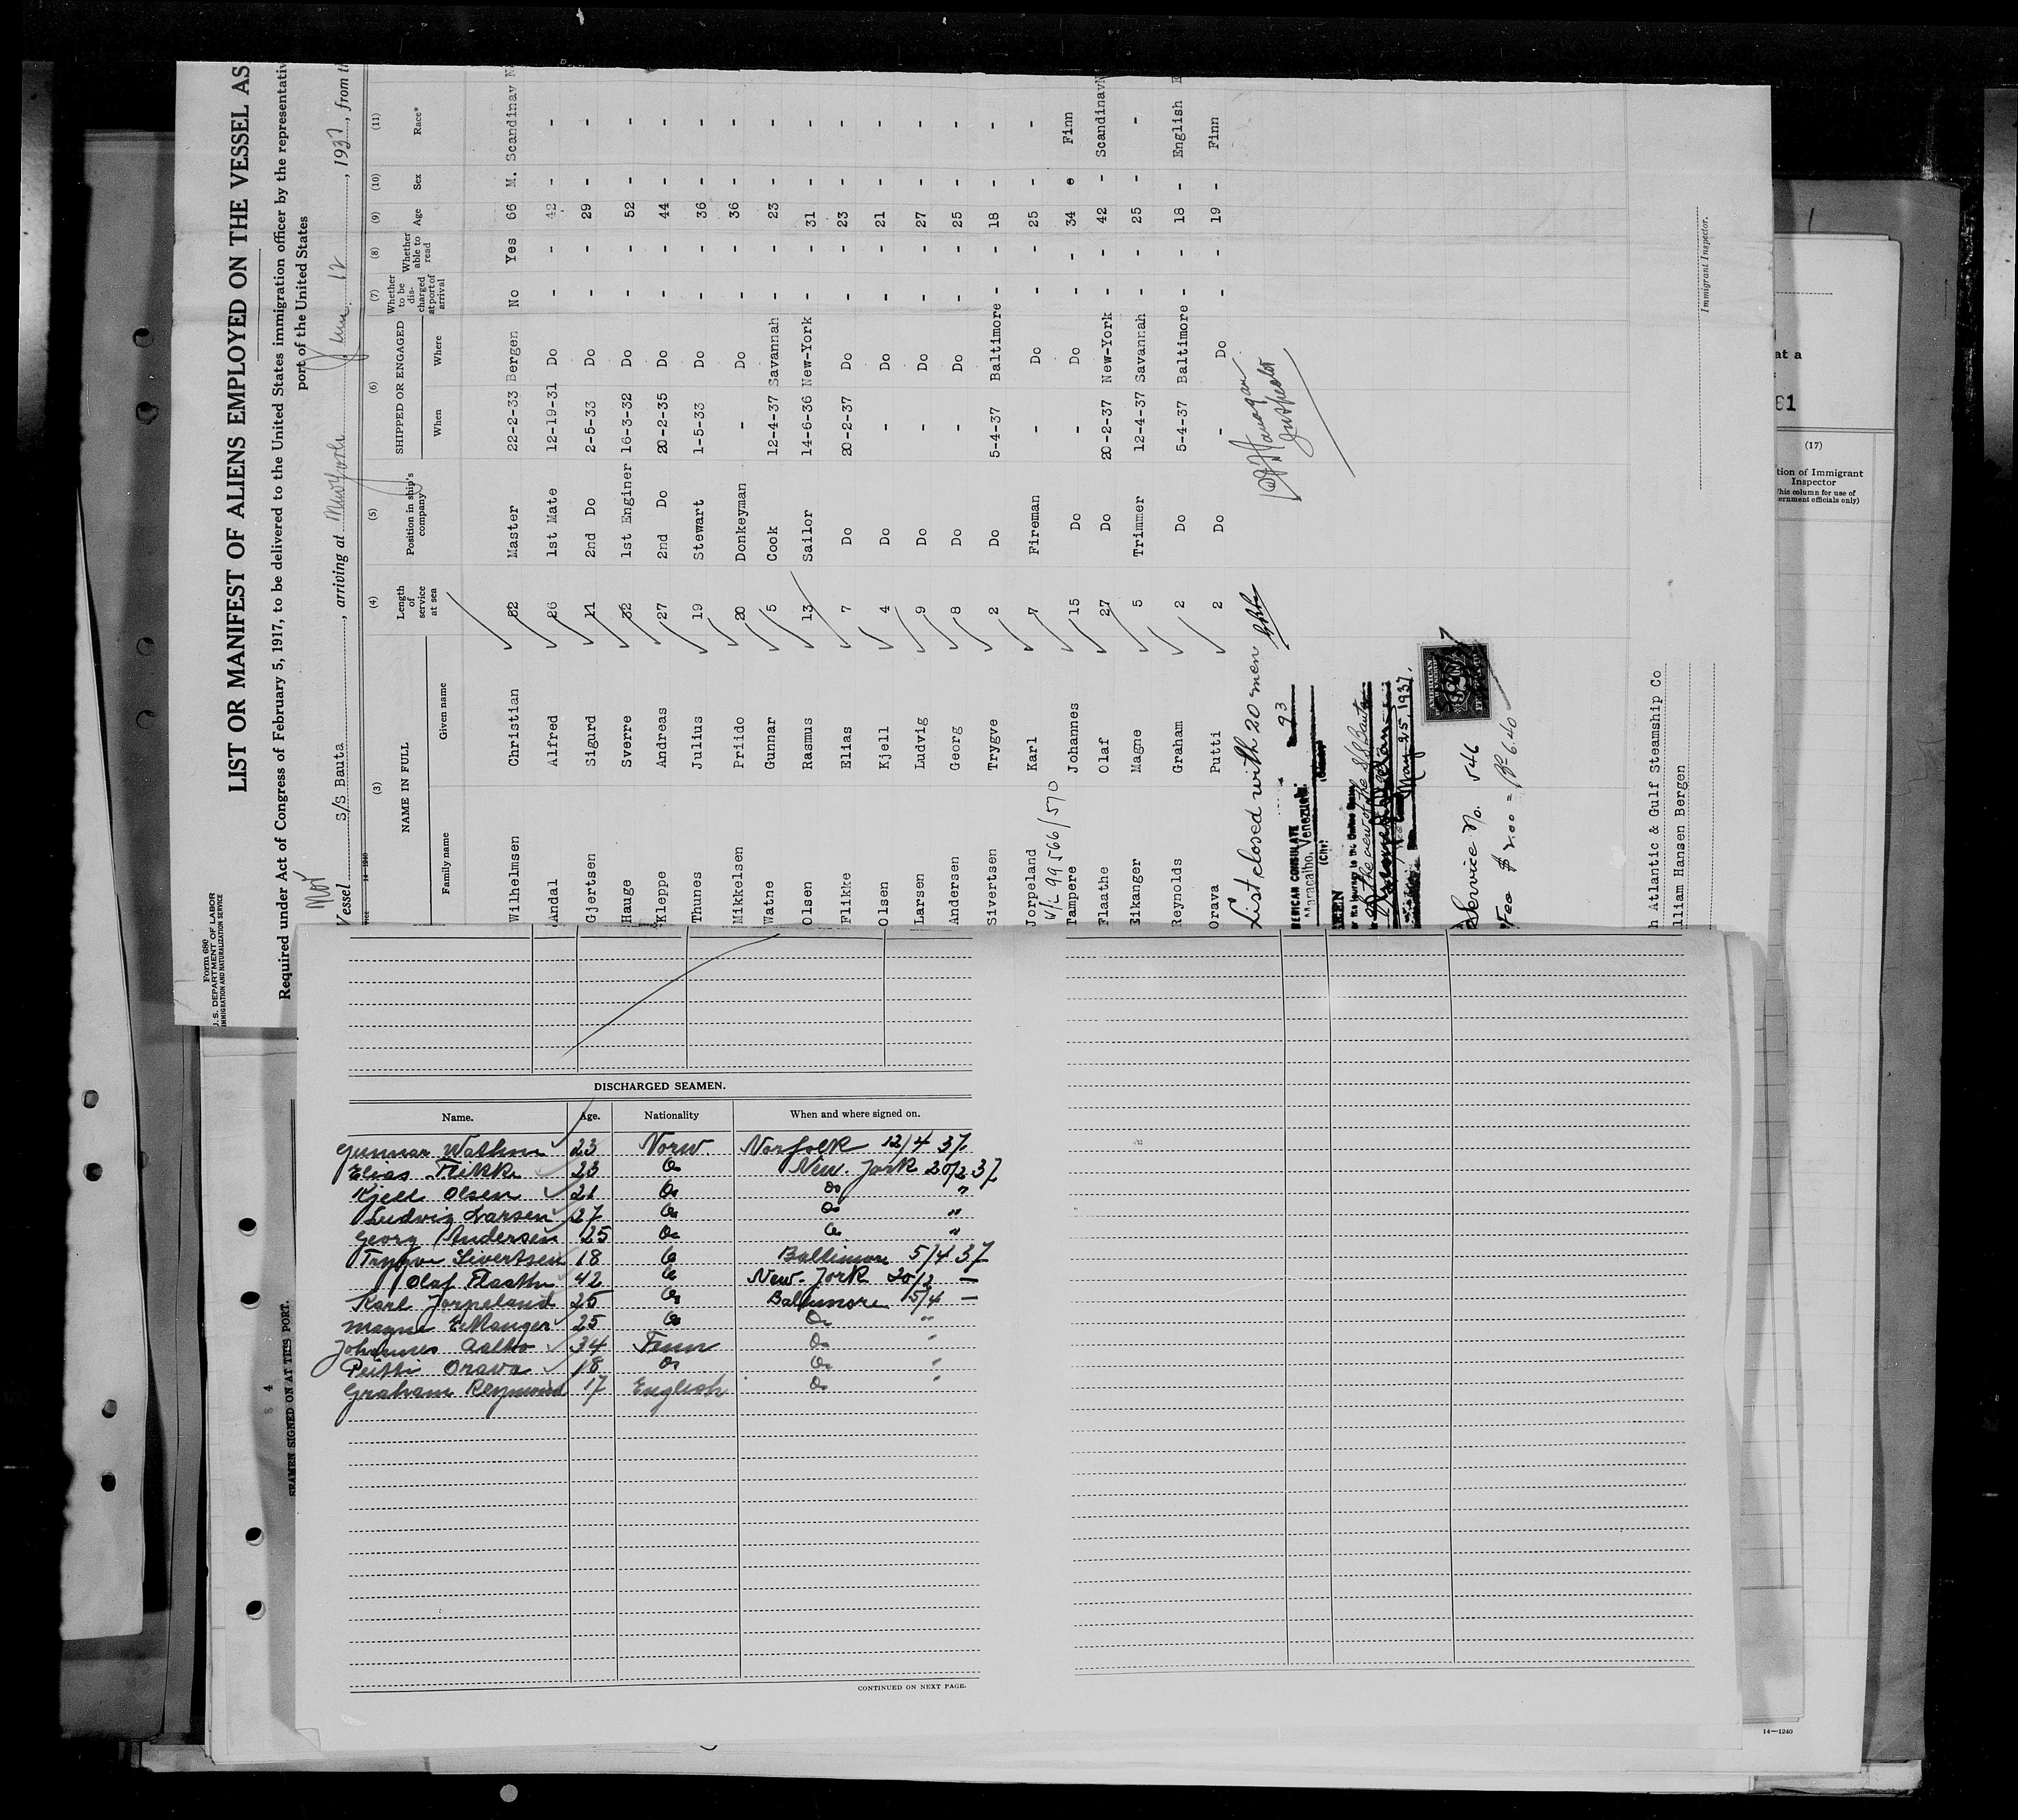 Form 680
U. S. DEPARTMENT OF LABOR
IMMIGRATION AND NATURALIZATION SERVICE
LIST OR MANIFEST OF ALIENS EMPLOYED ON THE VESSEL AS
Required under Act of Congress of February 5, 1917, to be delivered to the United States immigration officer by the representativ
port of the United States
Nor
Vessel S/S Bauta, arriving at New York June 12, 1937, from th
14-1240
(3) (4) (5) (6) (7) (8) (9) (10) (11)
NAME IN FULL Length of service at sea Position in ship's company SHIPPED OR ENGAGED Whether to be discharged at port of arrival Whether able to read Age Sex Race*
Family name Given name When Where
Wilhelmsen Christian 52 Master 22-2-33 Bergen No Yes 66 M. Scandinav N
Andal Alfred 26 1st Mate 12-19-31 Do - - 42 - -
Gjertsen Sigurd 11 2nd Do 2-5-33 Do - - 29 - -
Hauge Sverre 32 1st Enginer 16-3-32 Do - - 52 - -
Kleppe Andreas 27 2nd Do 20-2-35 Do - - 44 - -
Thunes Julius 19 Stewart 1-5-33 Do - - 36 - -
Mikkelsen Priido 20 Donkeyman - Do - - 36 - -
Watne Gunnar 5 Cook 12-4-37 Savannah - - 23 - -
Olsen Rasmus 13 Sailor 14-6-36 New-York - - 31 - -
Flikke Elias 7 Do 20-2-37 Do - - 23 - -
Olsen Kjell 4 Do - Do - - 21 - -
Larsen Ludvig 9 Do - Do - - 27 - -
Andersen Georg 8 Do - Do - - 25 - -
Sivertsen Trygve 2 Do 5-4-37 Baltimore - - 18 - -
Jorpeland Karl 7 Fireman - Do - - 25 - -
V/L 99566/570
Tampere Johannes 15 Do - Do - - 34 - Finn
Flaathe Olaf 27 Do 20-2-37 New-York - - 42 - Scandinav N
Eikanger Magne 5 Trimmer 12-4-37 Savannah - - 25 - -
Reynolds Graham 2 Do 5-4-37 Baltimore - - 18 - English E
Orava Putti 2 Do - Do - - 19 - Finn
List closed with 20 men
Inspector
93
ERICAN CONSULATE
Maracaibo, Venezuela.
(City)
of the crew of the S/S Bauta
May 25, 1937.
AMERICAN
Service No. 546
Fee $ 2.00 = Bs 6.40
h Atlantic & Gulf Steamship Co
lliam Hansen Bergen
Immigrant Inspector.
at a
61
(17)
tion of Immigrant
Inspector
his column for use of
ernment officials only)
SEAMEN SIGNED ON AT THIS PORT.
8 4
DISCHARGED SEAMEN.
Name. Age. Nationality When and where signed on.
Gunnar Wathne 23 Norw. Norfolk 12/4 37.
Elias Flikke 23 Do New-York 20/2 37
Kjell Olsen 21 Do Do "
Ludvig Larsen 27 Do Do "
Georg Andersen 25 Do Do "
Trygve Sivertsen 18 Do Baltimore 5/4 37
Olaf Flaathe 42 Do New-York 20/2 —
Karl Jorpeland 25 Do Baltimore 5/4 —
Magne Eikanger 25 Do Do "
Johannes Aalto 34 Finn Do "
Putti Orava 18 Do Do "
Graham Reymond 17 English Do "
CONTINUED ON NEXT PAGE.
14—1240